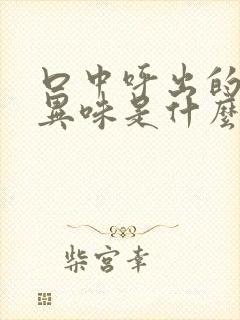 口中呼出的
異味是什麼
柴宮幸